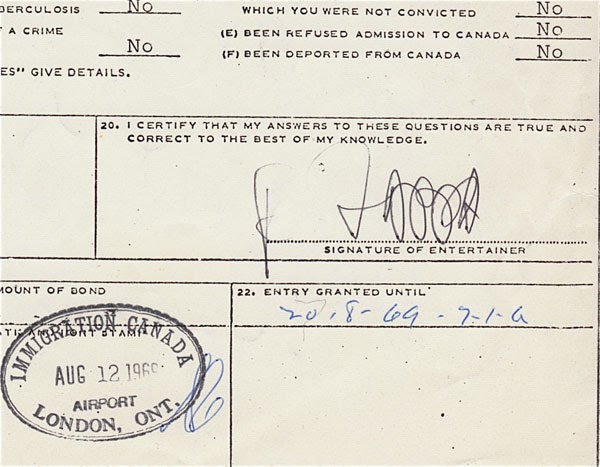 BERCULOSIS No
WHICH YOU WERE NOT CONVICTED No
T A CRIME
No
(E) BEEN REFUSED ADMISSION TO CANADA No
(F) BEEN DEPORTED FROM CANADA No
ES" GIVE DETAILS.
20. I CERTIFY THAT MY ANSWERS TO THESE QUESTIONS ARE TRUE AND
CORRECT TO THE BEST OF MY KNOWLEDGE.
SIGNATURE OF ENTERTAINER
MOUNT OF BOND
22. ENTRY GRANTED UNTIL
20.8-69
STAMP
IMMIGRATION CANADA
AUG 12 1969
AIRPORT
LONDON, ONT.